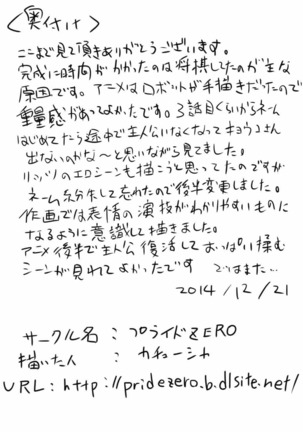 <奥付け>
ここまで見て頂きありがとうございます。
完成に時間がかかったのは将棋してたのが主な
原因です。アニメはロボットが手描きだったので
重量感があってよかったです。3話目くらいからネーム
はじめてたら途中で主人公いなくなってキョウコさん
出ないのかな〜と思いながら見てました。
リッツのエロシーンも描こうと思ってたのですが
ネーム紛失して忘れたので後半変更しました。
作画では表情の演技がわかりやすいものに
なるように意識して描きました。
アニメ後半で主人公復活しておっぱい揉む
シーンが見れてよかったです ではまた…
2014/12/21
サークル名：プライドZERO
描いた人：カチューシャ
URL：http://pridezero.b.dlsite.net/